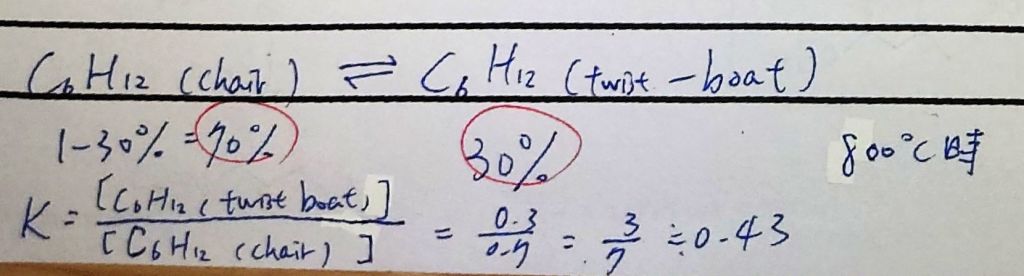 C6H12 (chair) ⇌ C6H12 (twist-boat)
1-30% = 70% 30% 800°C時
K = [C6H12 (twist boat)] / [C6H12 (chair)] = 0.3/0.7 = 3/7 ≒ 0.43